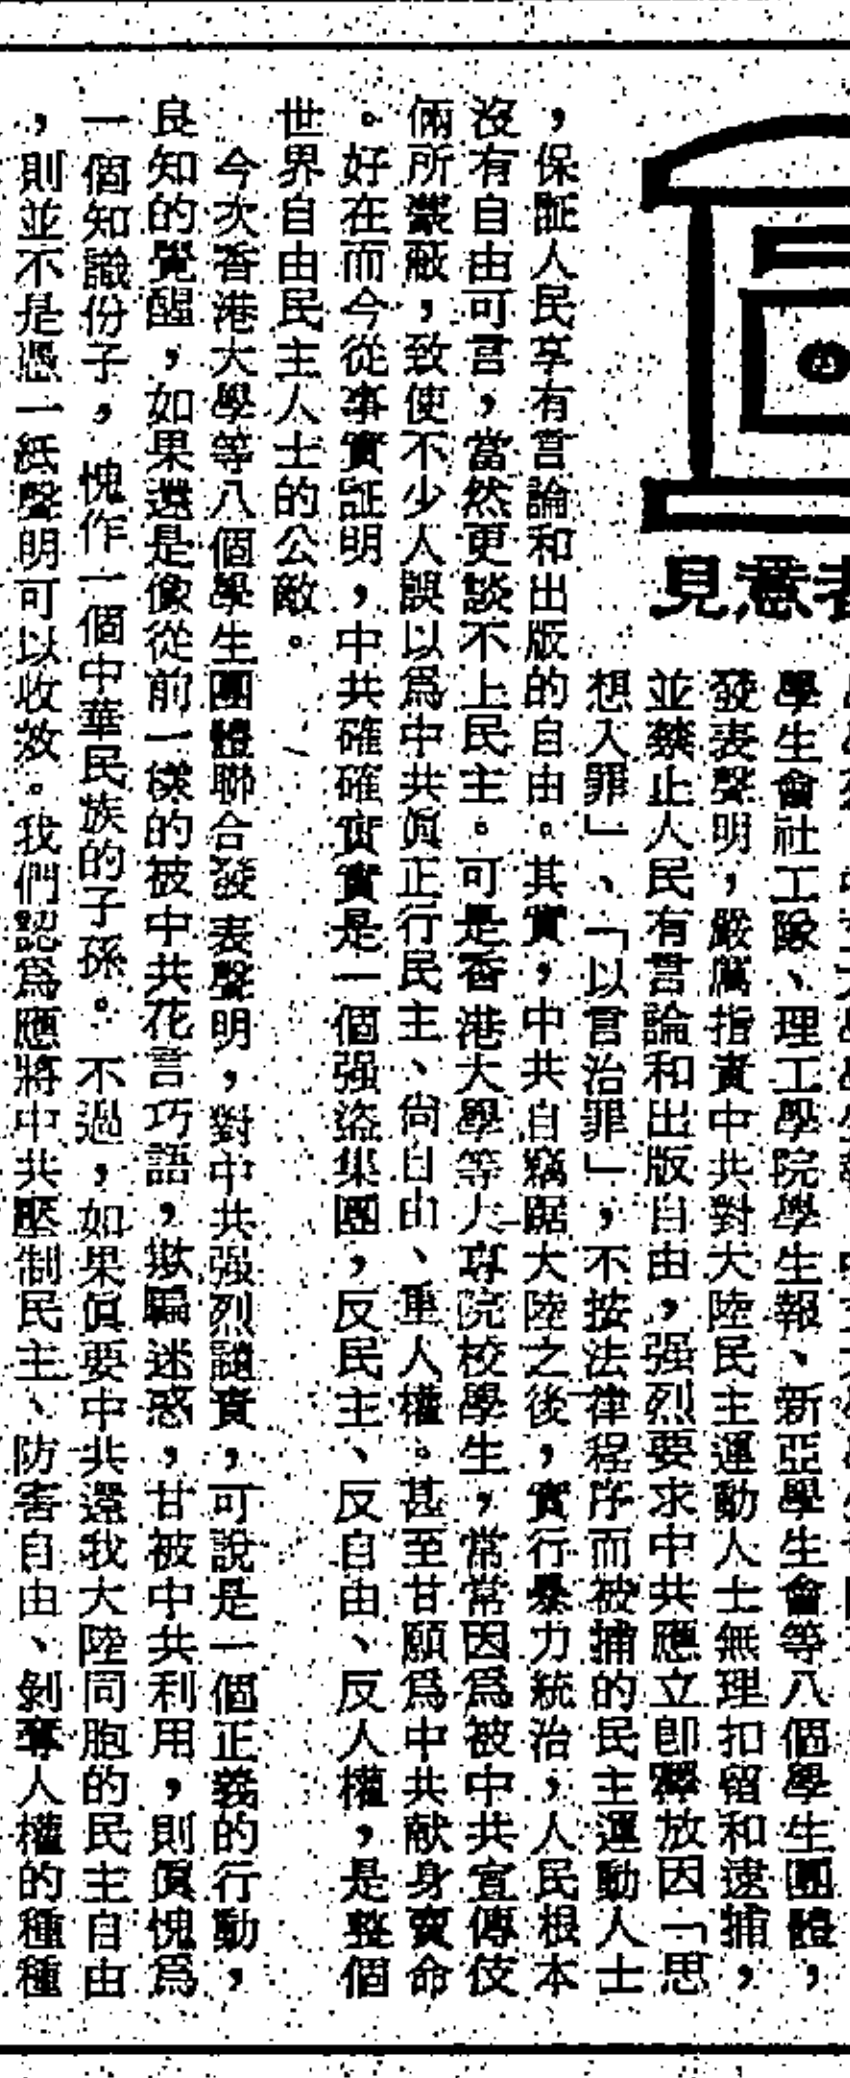 見意者
學生會社工隊、理工學院學生報、新亞學生會等八個學生團體，
發表聲明，嚴厲指責中共對大陸民主運動人士無理扣留和逮捕，
並禁止人民有言論和出版自由，强烈要求中共應立卽釋放因「思
想入罪」、「以言治罪」，不按法律程序而被捕的民主運動人士
，保証人民享有言論和出版的自由。其實，中共自竊踞大陸之後，實行暴力統治，人民根本
沒有自由可言，當然更談不上民主。可是香港大學等大專院校學生，常常因爲被中共宣傳伎
倆所蒙蔽，致使不少人誤以爲中共眞正行民主、尙自由、重人權。甚至甘願爲中共献身賣命
。好在而今從事實証明，中共確確實實是一個强盜集團，反民主、反自由、反人權，是整個
世界自由民主人士的公敵。
今次香港大學等八個學生團體聯合發表聲明，對中共强烈譴責，可說是一個正義的行動，
良知的覺醒，如果還是像從前一樣的被中共花言巧語，欺騙迷惑，甘被中共利用，則眞愧爲
一個知識份子，愧作一個中華民族的子孫。不過，如果眞要中共還我大陸同胞的民主自由
，則並不是憑一紙聲明可以收效。我們認爲應將中共壓制民主、防害自由、剝奪人權的種種